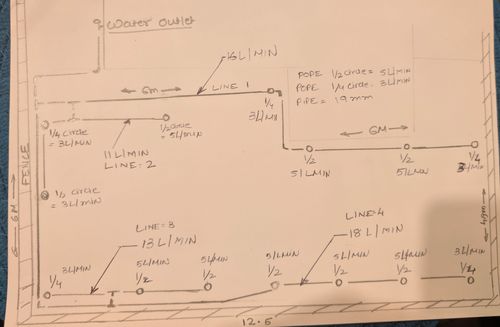 Water outlet
16 L/MIN
6M
LINE 1
POPE 1/2 circle = 5L/MIN
POPE 1/4 circle. 3L/MIN
PIPE = 19mm
1/4
3L/MIN
1/4 circle
= 3L/MIN
1/2 circle
= 5L/MIN
11 L/MIN
LINE: 2
6M
1/2
5 L/MIN
1/2
5 L/MIN
1/4
3L/MIN
FENCE
6M
1/2 circle
= 3L/MIN
LINE = 3
13 L/MIN
LINE-4
18 L/MIN
3L/MIN
1/4
5L/MIN
1/2
5L/MIN
1/2
5L/MIN
1/2
5L/MIN
1/2
5L/MIN
1/2
3L/MIN
1/4
12.6